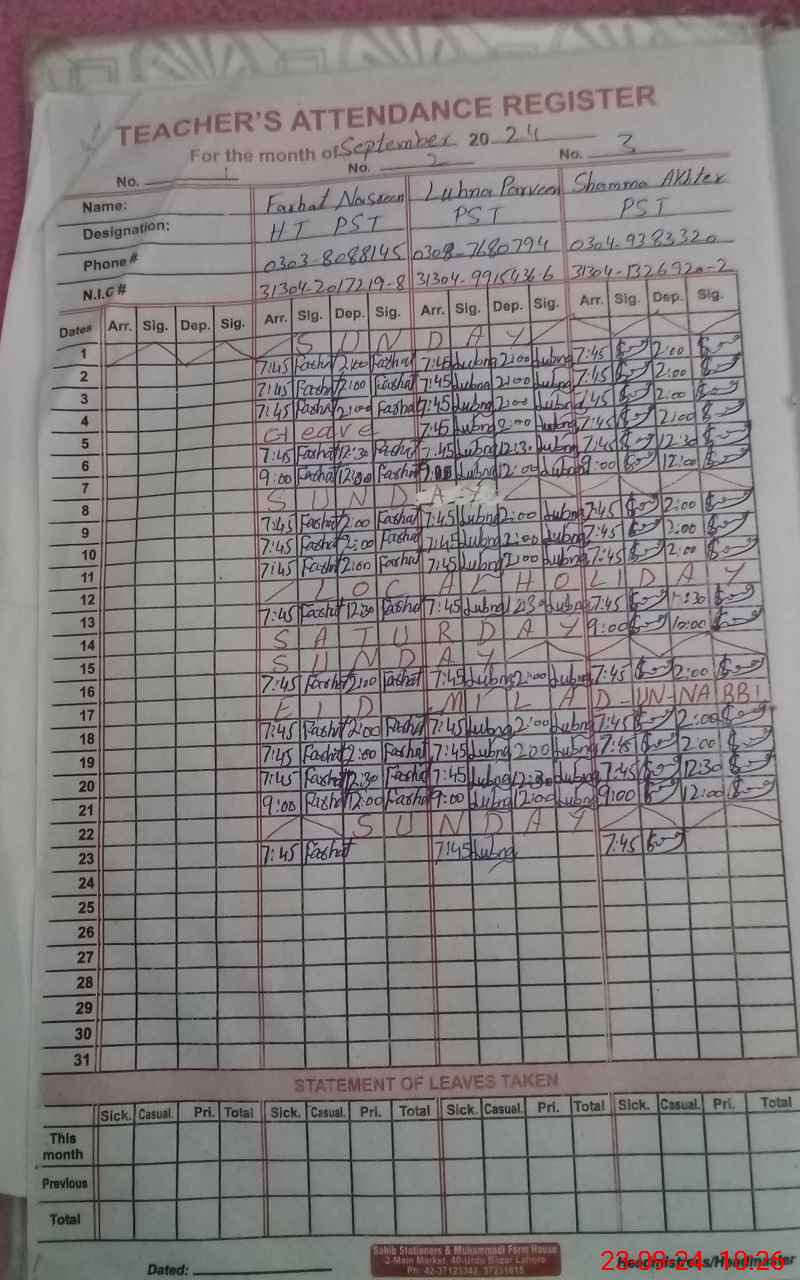 TEACHER'S ATTENDANCE REGISTER
For the month of September 2024
No. 1 No. 2 No. 3
Name: Farhat Nasreen Lubna Parveen Shamma Akhter
Designation: HT PST PST PST
Phone # 0303-8088145 0308-7680794 0304-9383320
N.I.C # 31304-2017219-8 31304-9915436-6 31304-1326920-2
Dates Arr. Sig. Dep. Sig. Arr. Sig. Dep. Sig. Arr. Sig. Dep. Sig. Arr. Sig. Dep. Sig.
1 SUNDAY
2 7:45 Farhat 2:00 Farhat 7:45 Lubna 2:00 Lubna 7:45 2:00
3 7:45 Farhat 2:00 Farhat 7:45 Lubna 2:00 Lubna 7:45 2:00
4 7:45 Farhat 2:00 Farhat 7:45 Lubna 2:00 Lubna 7:45 2:00
5 leave 7:45 Lubna 2:00 Lubna 7:45 2:00
6 7:45 Farhat 12:30 Farhat 7:45 Lubna 12:30 Lubna 7:45 12:30
7 9:00 Farhat 12:00 Farhat 9:00 Lubna 12:00 Lubna 9:00 12:00
8 SUNDAY
9 7:45 Farhat 2:00 Farhat 7:45 Lubna 2:00 Lubna 7:45 2:00
10 7:45 Farhat 2:00 Farhat 7:45 Lubna 2:00 Lubna 7:45 2:00
11 7:45 Farhat 2:00 Farhat 7:45 Lubna 2:00 Lubna 7:45 2:00
12 LOCAL HOLIDAY
13 7:45 Farhat 12:30 Farhat 7:45 Lubna 12:30 Lubna 7:45
14 SATURDAY 9:00
15 SUNDAY
16 7:45 Farhat 2:00 Farhat 7:45 Lubna 2:00 Lubna 7:45 2:00
17 EID MILAD-UN-NABBI
18 7:45 Farhat 2:00 Farhat 7:45 Lubna 2:00 Lubna 7:45 2:00
19 7:45 Farhat 2:00 Farhat 7:45 Lubna 2:00 Lubna 7:45 2:00
20 7:45 Farhat 12:30 Farhat 7:45 Lubna 12:30 Lubna 7:45 12:30
21 9:00 Farhat 12:00 Farhat 9:00 Lubna 12:00 Lubna 9:00 12:00
22 SUNDAY
23 7:45 Farhat 7:45 Lubna 7:45
24
25
26
27
28
29
30
31
STATEMENT OF LEAVES TAKEN
Sick. Casual. Pri. Total Sick. Casual. Pri. Total Sick. Casual. Pri. Total Sick. Casual. Pri. Total
This month
Previous
Total
Dated:
Sahib Stationers & Muhammadi Form House
2-Main Market, 40-Urdu Bazar Lahore
Ph: 42-37123342, 37231615
Headmistress/Headmaster